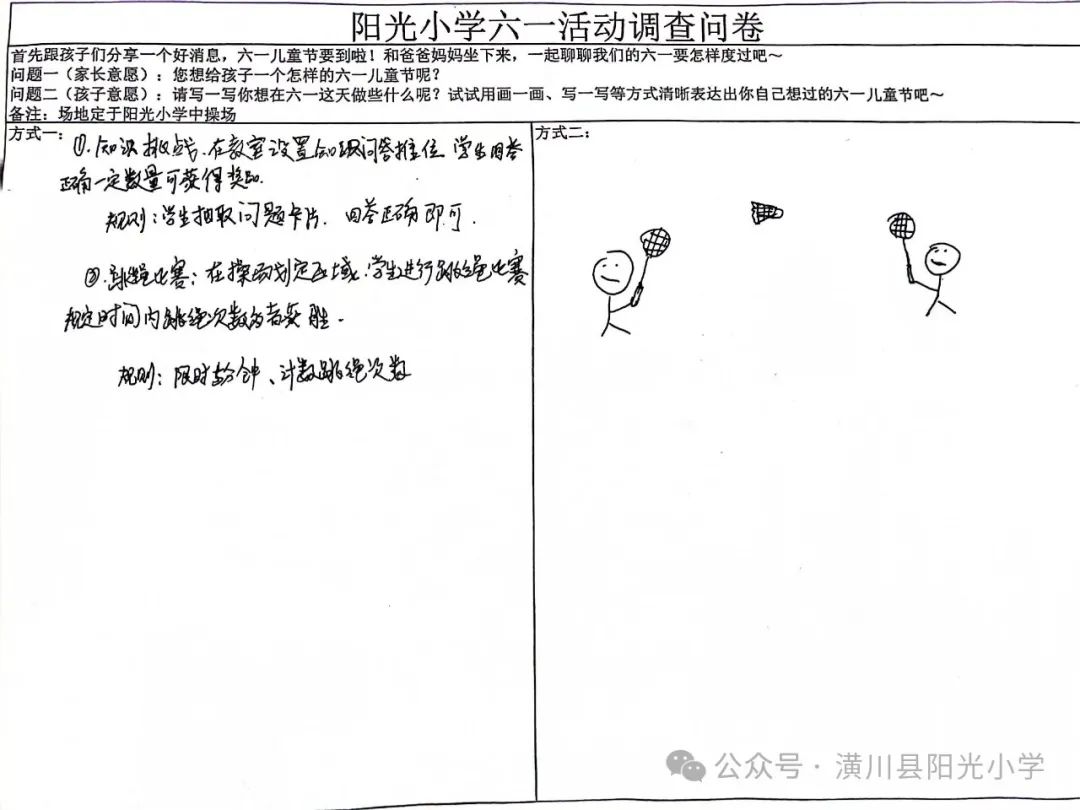 阳光小学六一活动调查问卷
首先跟孩子们分享一个好消息，六一儿童节要到啦！和爸爸妈妈坐下来，一起聊聊我们的六一要怎样度过吧～
问题一（家长意愿）：您想给孩子一个怎样的六一儿童节呢？
问题二（孩子意愿）：请写一写你想在六一这天做些什么呢？试试用画一画、写一写等方式清晰表达出你自己想过的六一儿童节吧～
备注：场地定于阳光小学中操场
方式一：
①.知识挑战.在教室设置知识问答摊位 学生回答
正确一定数量可获得奖励.
规则：学生抽取问题卡片. 回答正确即可.
②.跳绳比赛：在操场划定区域.学生进行跳绳比赛
规定时间内跳绳次数多者获胜.
规则：限时 分钟、计数跳绳次数
方式二：
公众号 · 潢川县阳光小学